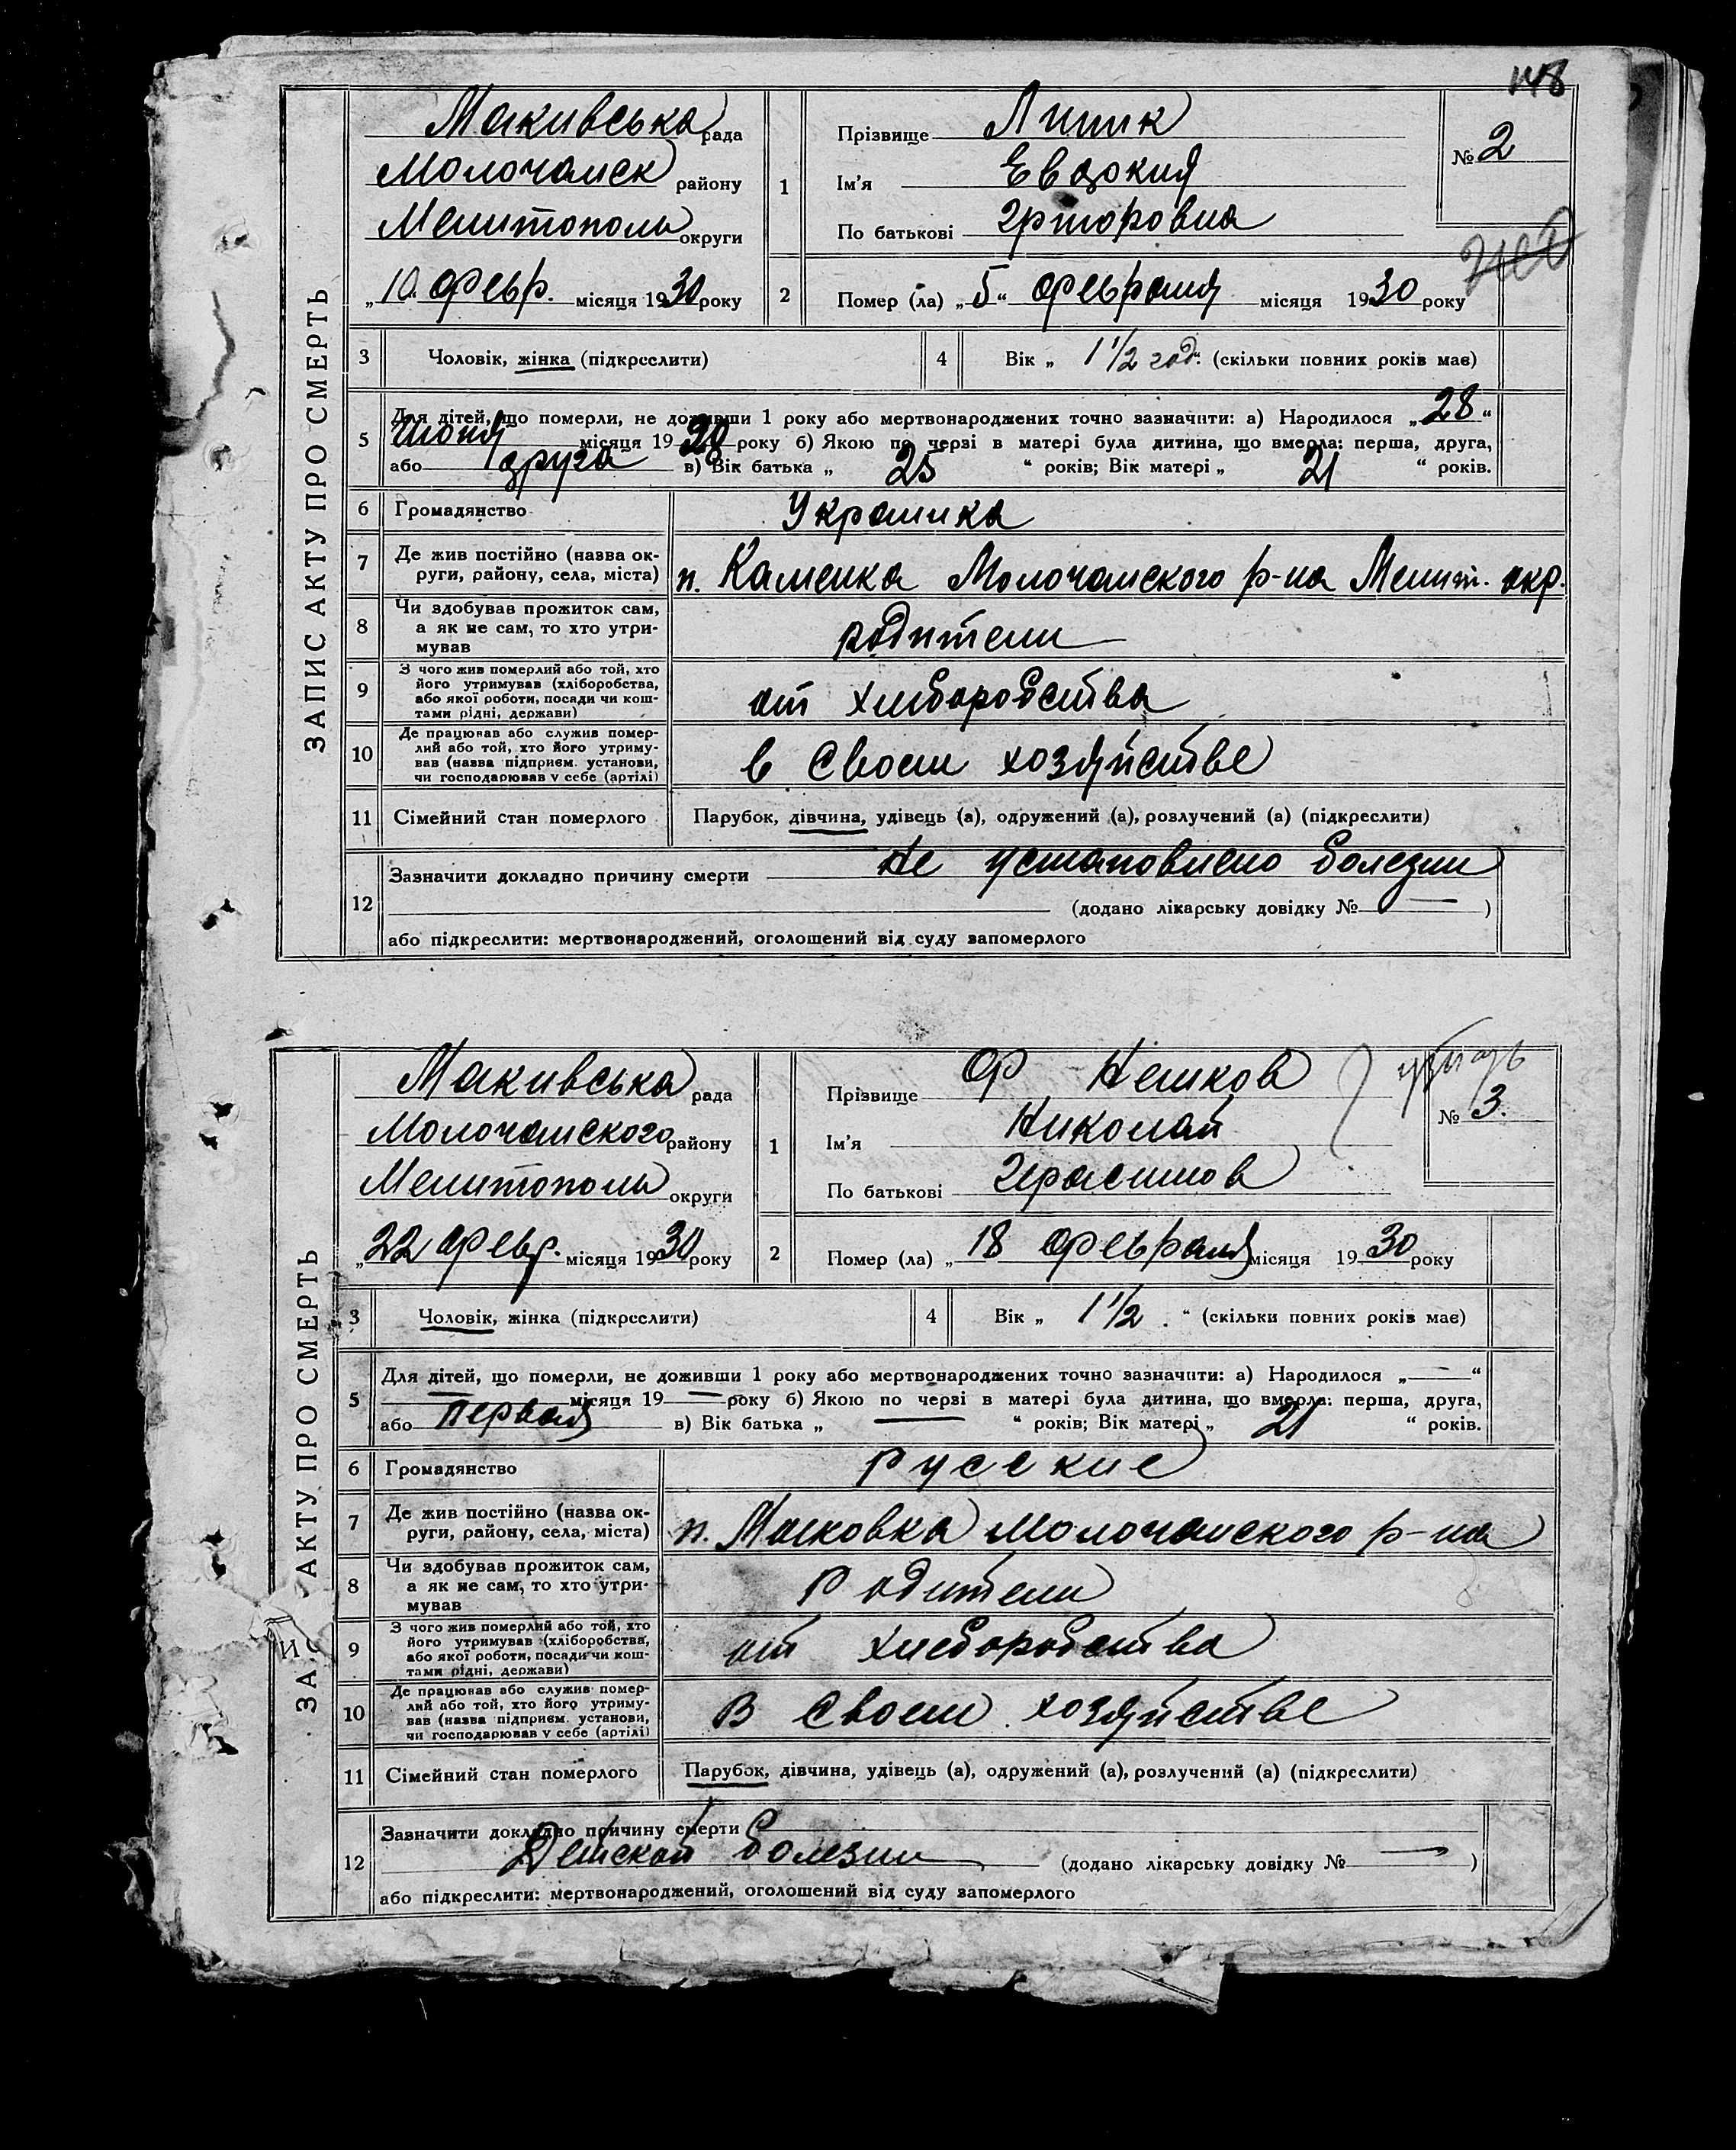 148
ЗАПИС АКТУ ПРО СМЕРТЬ
Макивська рада
Молочанск району
Мелитополь округи
„10. февр. місяця 1930 року
1
Прізвище Липик
Ім'я Евдокия
По батькові
№ 2
2
Помер (ла) „5“ февраля місяця 1930 року
3
Чоловік, жінка (підкреслити)
4
Вік „ 1 1/2 год. (скільки повних років має)
5
Для дітей, що померли, не доживши 1 року або мертвонароджених точно зазначити: а) Народилося „28“
Июня місяця 19 року б) Якою по черзі в матері була дитина, що вмерла: перша, друга,
або друга в) Вік батька „ 25 “ років; Вік матері „ 21 “ років.
6
Громадянство
Украинка
7
Де жив постійно (назва ок-
руги, району, села, міста)
п. Каменка Молочанского р-на Мелит. окр.
8
Чи здобував прожиток сам,
а як не сам, то хто утри-
мував
родители
9
З чого жив померлий або той, хто
його утримував (хліборобства,
або якої роботи, посади чи кош-
тами рідні, держави)
от хлеборобства
10
Де працював або служив помер-
лий або той, хто його утриму-
вав (назва підприєм. установи,
чи господарював у себе (артілі)
в своем хозяйстве
11
Сімейний стан померлого
Парубок, дівчина, удівець (а), одружений (а), розлучений (а) (підкреслити)
12
Зазначити докладно причину смерти Не установлено болезни
(додано лікарську довідку № — )
або підкреслити: мертвонароджений, оголошений від суду запомерлого
ЗА АКТУ ПРО СМЕРТЬ
Макивська рада
Молочанского району
Мелитополь округи
„22 февр. місяця 1930 року
1
Прізвище Ф Нешков
Ім'я Николай
По батькові Герасимов
№ 3.
2
Помер (ла) „18 февраля місяця 1930 року
3
Чоловік, жінка (підкреслити)
4
Вік „ 1 1/2 . “ (скільки повних років має)
5
Для дітей, що померли, не доживши 1 року або мертвонароджених точно зазначити: а) Народилося „—“
— місяця 19 — року б) Якою по черзі в матері була дитина, що вмерла: перша, друга,
або первая в) Вік батька „ — “ років; Вік матері „ 21 “ років.
6
Громадянство
русские
7
Де жив постійно (назва ок-
руги, району, села, міста)
п. Маковка Молочанского р-на
8
Чи здобував прожиток сам,
а як не сам, то хто утри-
мував
Родители
9
З чого жив померлий або той, хто
його утримував (хліборобства,
або якої роботи, посади чи кош-
тами рідні, держави)
от хлеборобства
10
Де працював або служив помер-
лий або той, хто його утриму-
вав (назва підприєм. установи,
чи господарював у себе (артілі)
В своем хозяйстве
11
Сімейний стан померлого
Парубок, дівчина, удівець (а), одружений (а), розлучений (а) (підкреслити)
12
Зазначити докладно причину смерти
Детской болезни (додано лікарську довідку № — )
або підкреслити: мертвонароджений, оголошений від суду запомерлого